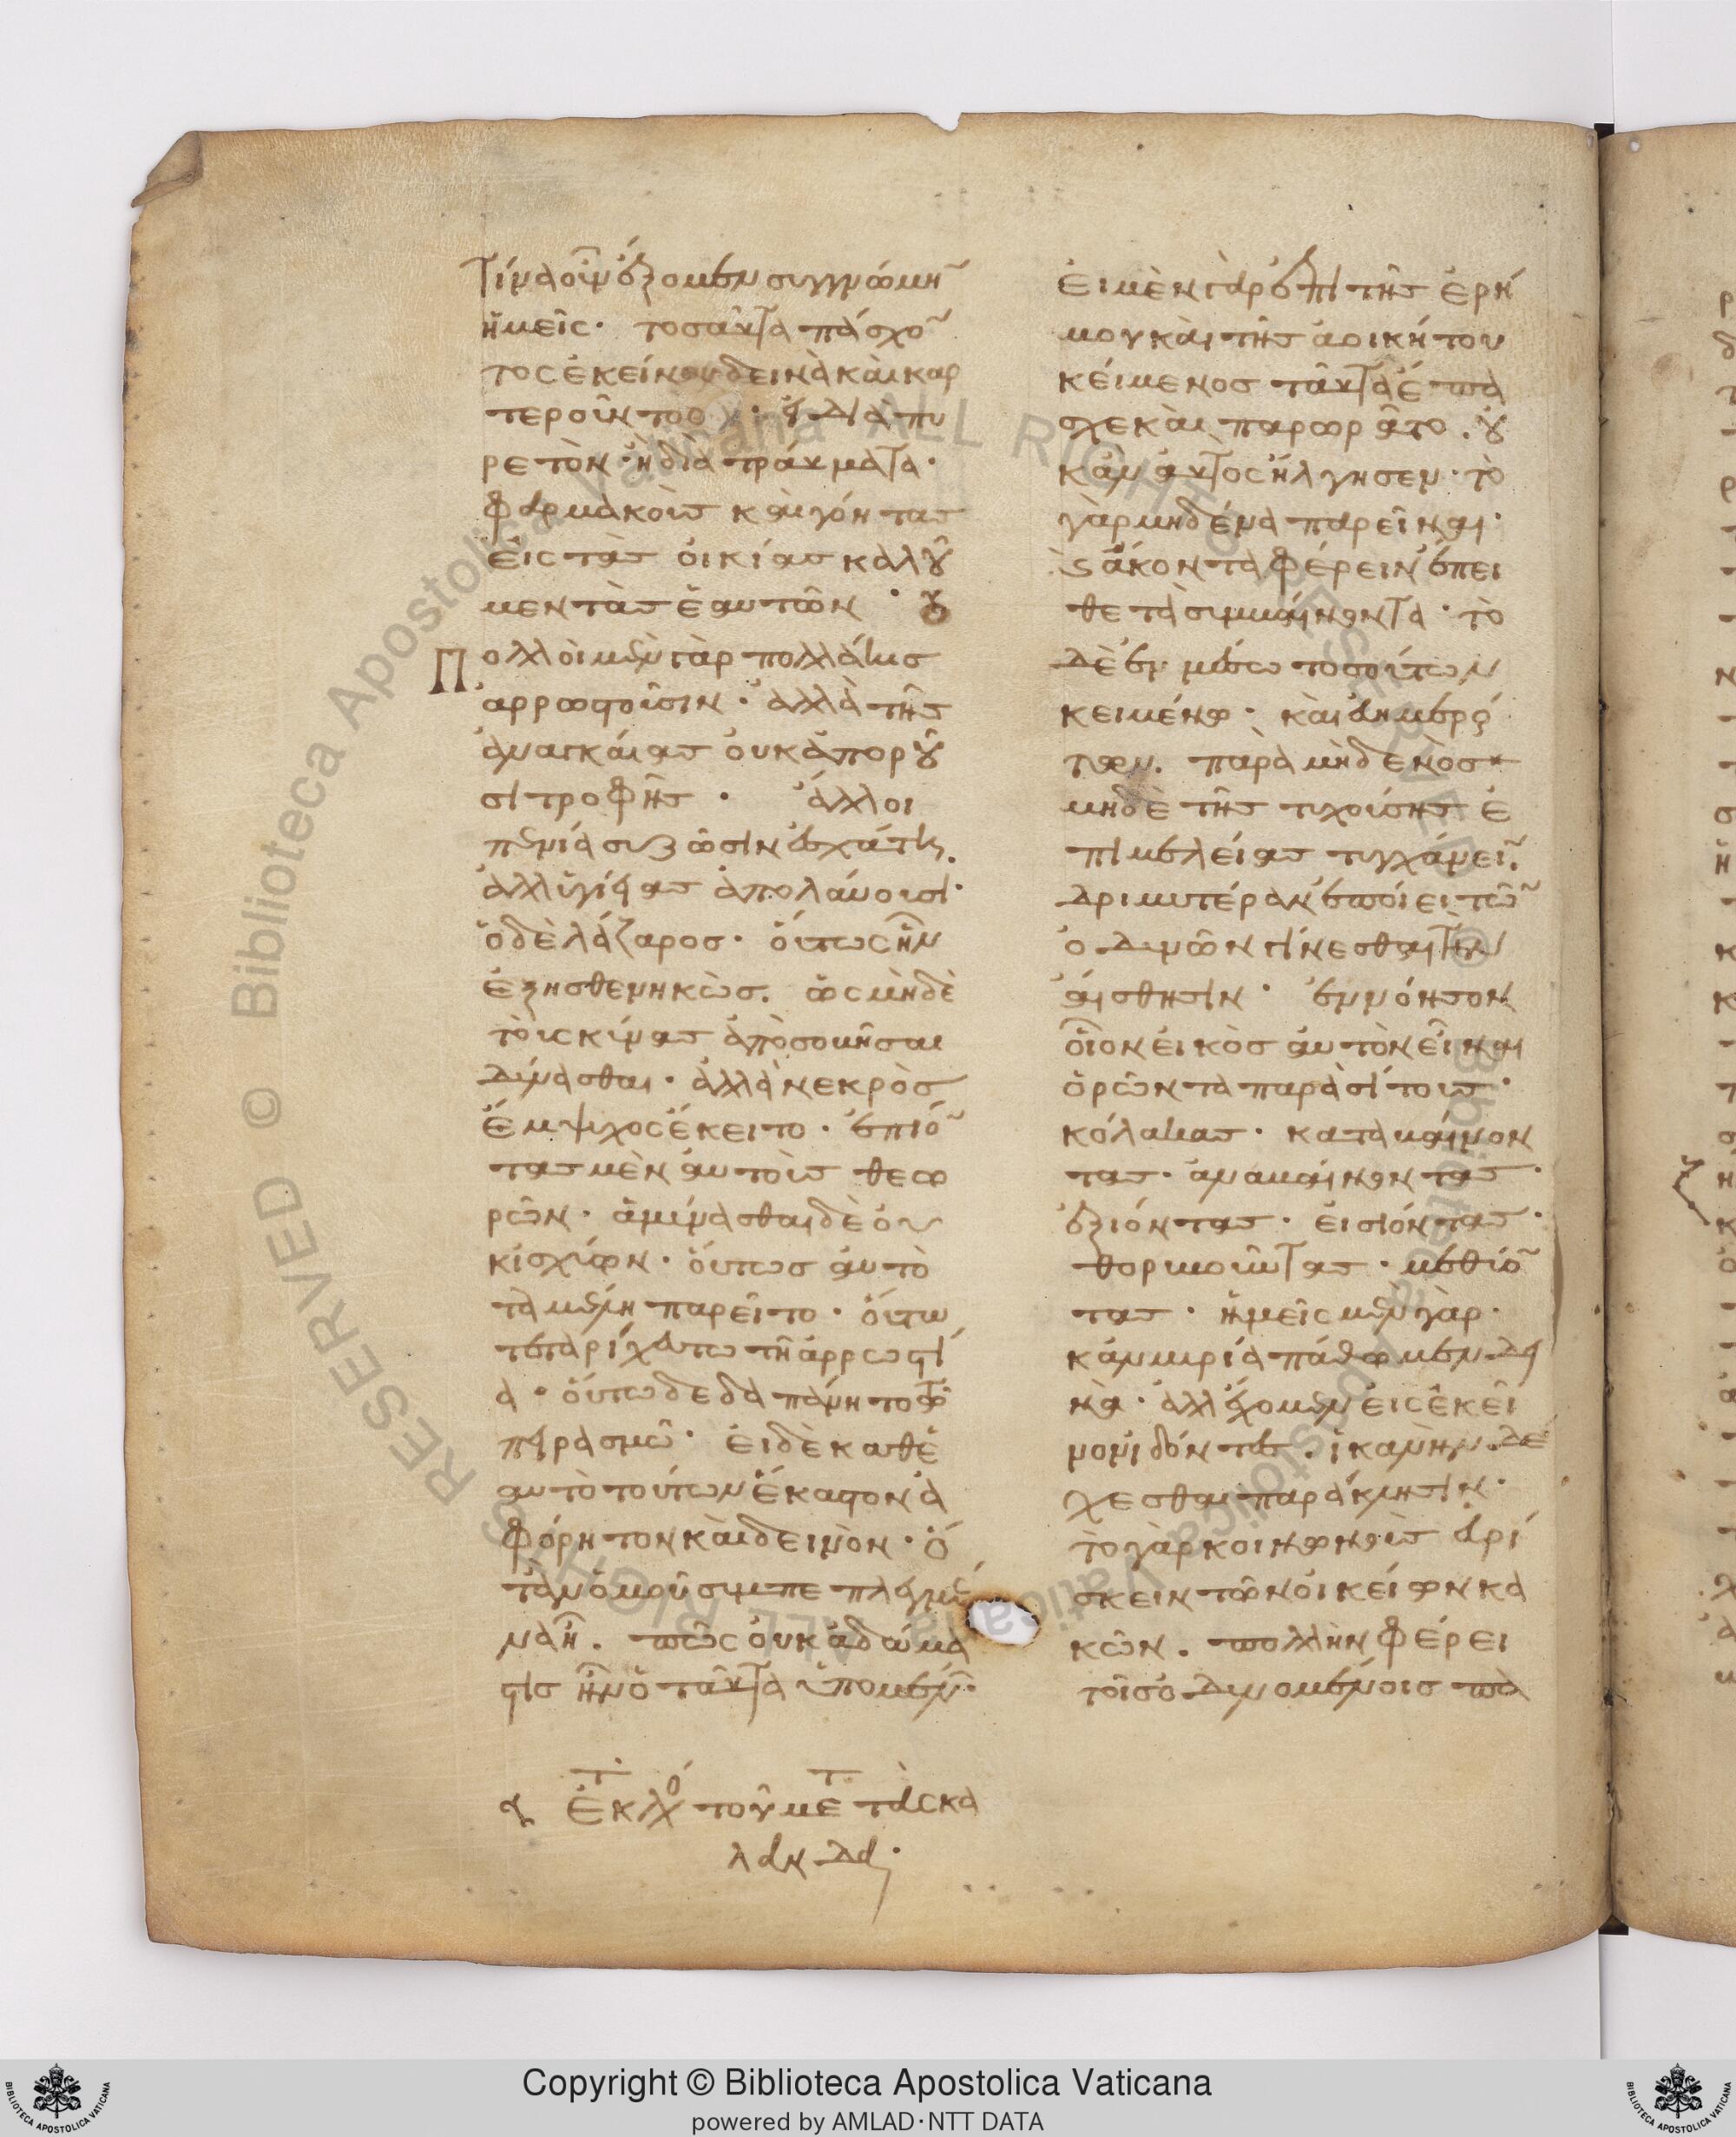 Τίνα οὖν ἕξομεν συγγνώμη̅
ἡμεῖς· τοσαῦτα πάσχο̅
τος ἐκείνου δεινὰ καὶ καρ
τεροῦντος· ἢ διὰ πυ
ρετὸν· ἢ διὰ τραύματα·
φαρμακοὺς καὶ γόητας
εἰς τὰς οἰκίας καλοῦ
μεν τὰς ἑαυτῶν·
Πολλοὶ μὲν γὰρ πολλάκις
ἀρρωστοῦσιν· ἀλλὰ τῆς
ἀναγκαίας οὐκ ἀποροῦ
σι τροφῆς· ἄλλοι
πενίᾳ συζῶσιν ἐσχάτῃ.
ἀλλ' ὑγείας ἀπολαύουσι·
ὁ δὲ λάζαρος· οὕτως ἦν
ἐξησθενηκὼς. ὡς μηδὲ
τοὺς κύνας ἀποσοβῆσαι
δύνασθαι· ἀλλὰ νεκρὸς
ἔμψυχος ἔκειτο· ἐπιό̅
τας μὲν αὐτοὺς θεω
ρῶν· ἀμύνασθαι δὲ οὐ
κ ἰσχύων· οὕτως αὐτῶ
τὰ μέλη παρεῖτο· οὕτω
τεταρίχευτο τῆ ἀρρωστί
α· οὕτω δεδαπάνητο τῶ
πειρασμῶ· εἰ δὲ καθ' ἑ
αυτὸ τούτων ἕκαστον ἀ
φόρητον καὶ δεινὸν· ὅ
ταν ὁμοῦ συμπεπλεγμέ
να ἦ. πῶς οὐκ ἀδάμα
στις ἦν ὁ ταῦτα ὑπομένω̅·
Εἰ μὲν γὰρ ἐπὶ τῆς ἐρή
μου καὶ τῆς ἀοικήτου
κείμενος ταῦτα ἔπα
σχε καὶ παρωρᾶτο. οὐ
κ ἂν αὐτὸς ἤλγησεν· τὸ
γὰρ μηδένα παρεῖναι·
ϛ ἄκοντα φέρειν ἔπει
θε τὰ συμβαίνοντα· τὸ
δὲ ἐν μέσω τοσούτων
κείμενον· καὶ εὐημερού
των. παρὰ μηδενὸς
μηδὲ τῆς τυχούσης ἐ
πιμελείας τυγχάνει̅.
δριμυτέραν ἐποίει τῶ̅
ὀδυνῶν γίνεσθαι τὴν
αἴσθησιν· ἐννόησον
οἷον εἰκὸς αὐτὸν εἶναι
ὁρῶντα παρασίτους·
κόλακας· καταβαίνον
τας· ἀναβαίνοντας·
ἐξιόντας· εἰσιόντας·
θορυβοῦντας· μεθύο̅
τας· ἡμεῖς μὲν γὰρ·
κἂν μυρία πάθωμεν δει
νὰ· ἀλλ' ἔχομεν εἰς ἐκεῖ
νον ἰδόντες. ἱκανὴν δέ
χεσθαι παράκλησιν·
τὸ γὰρ κοινωνοὺς εὑρί
σκειν τῶν οἰκείων κα
κῶν. πολλὴν φέρει
τοῖς ὀδυνωμένοις πα
Ἐκ λό τοῦ με τὰς κα
λάνδας·